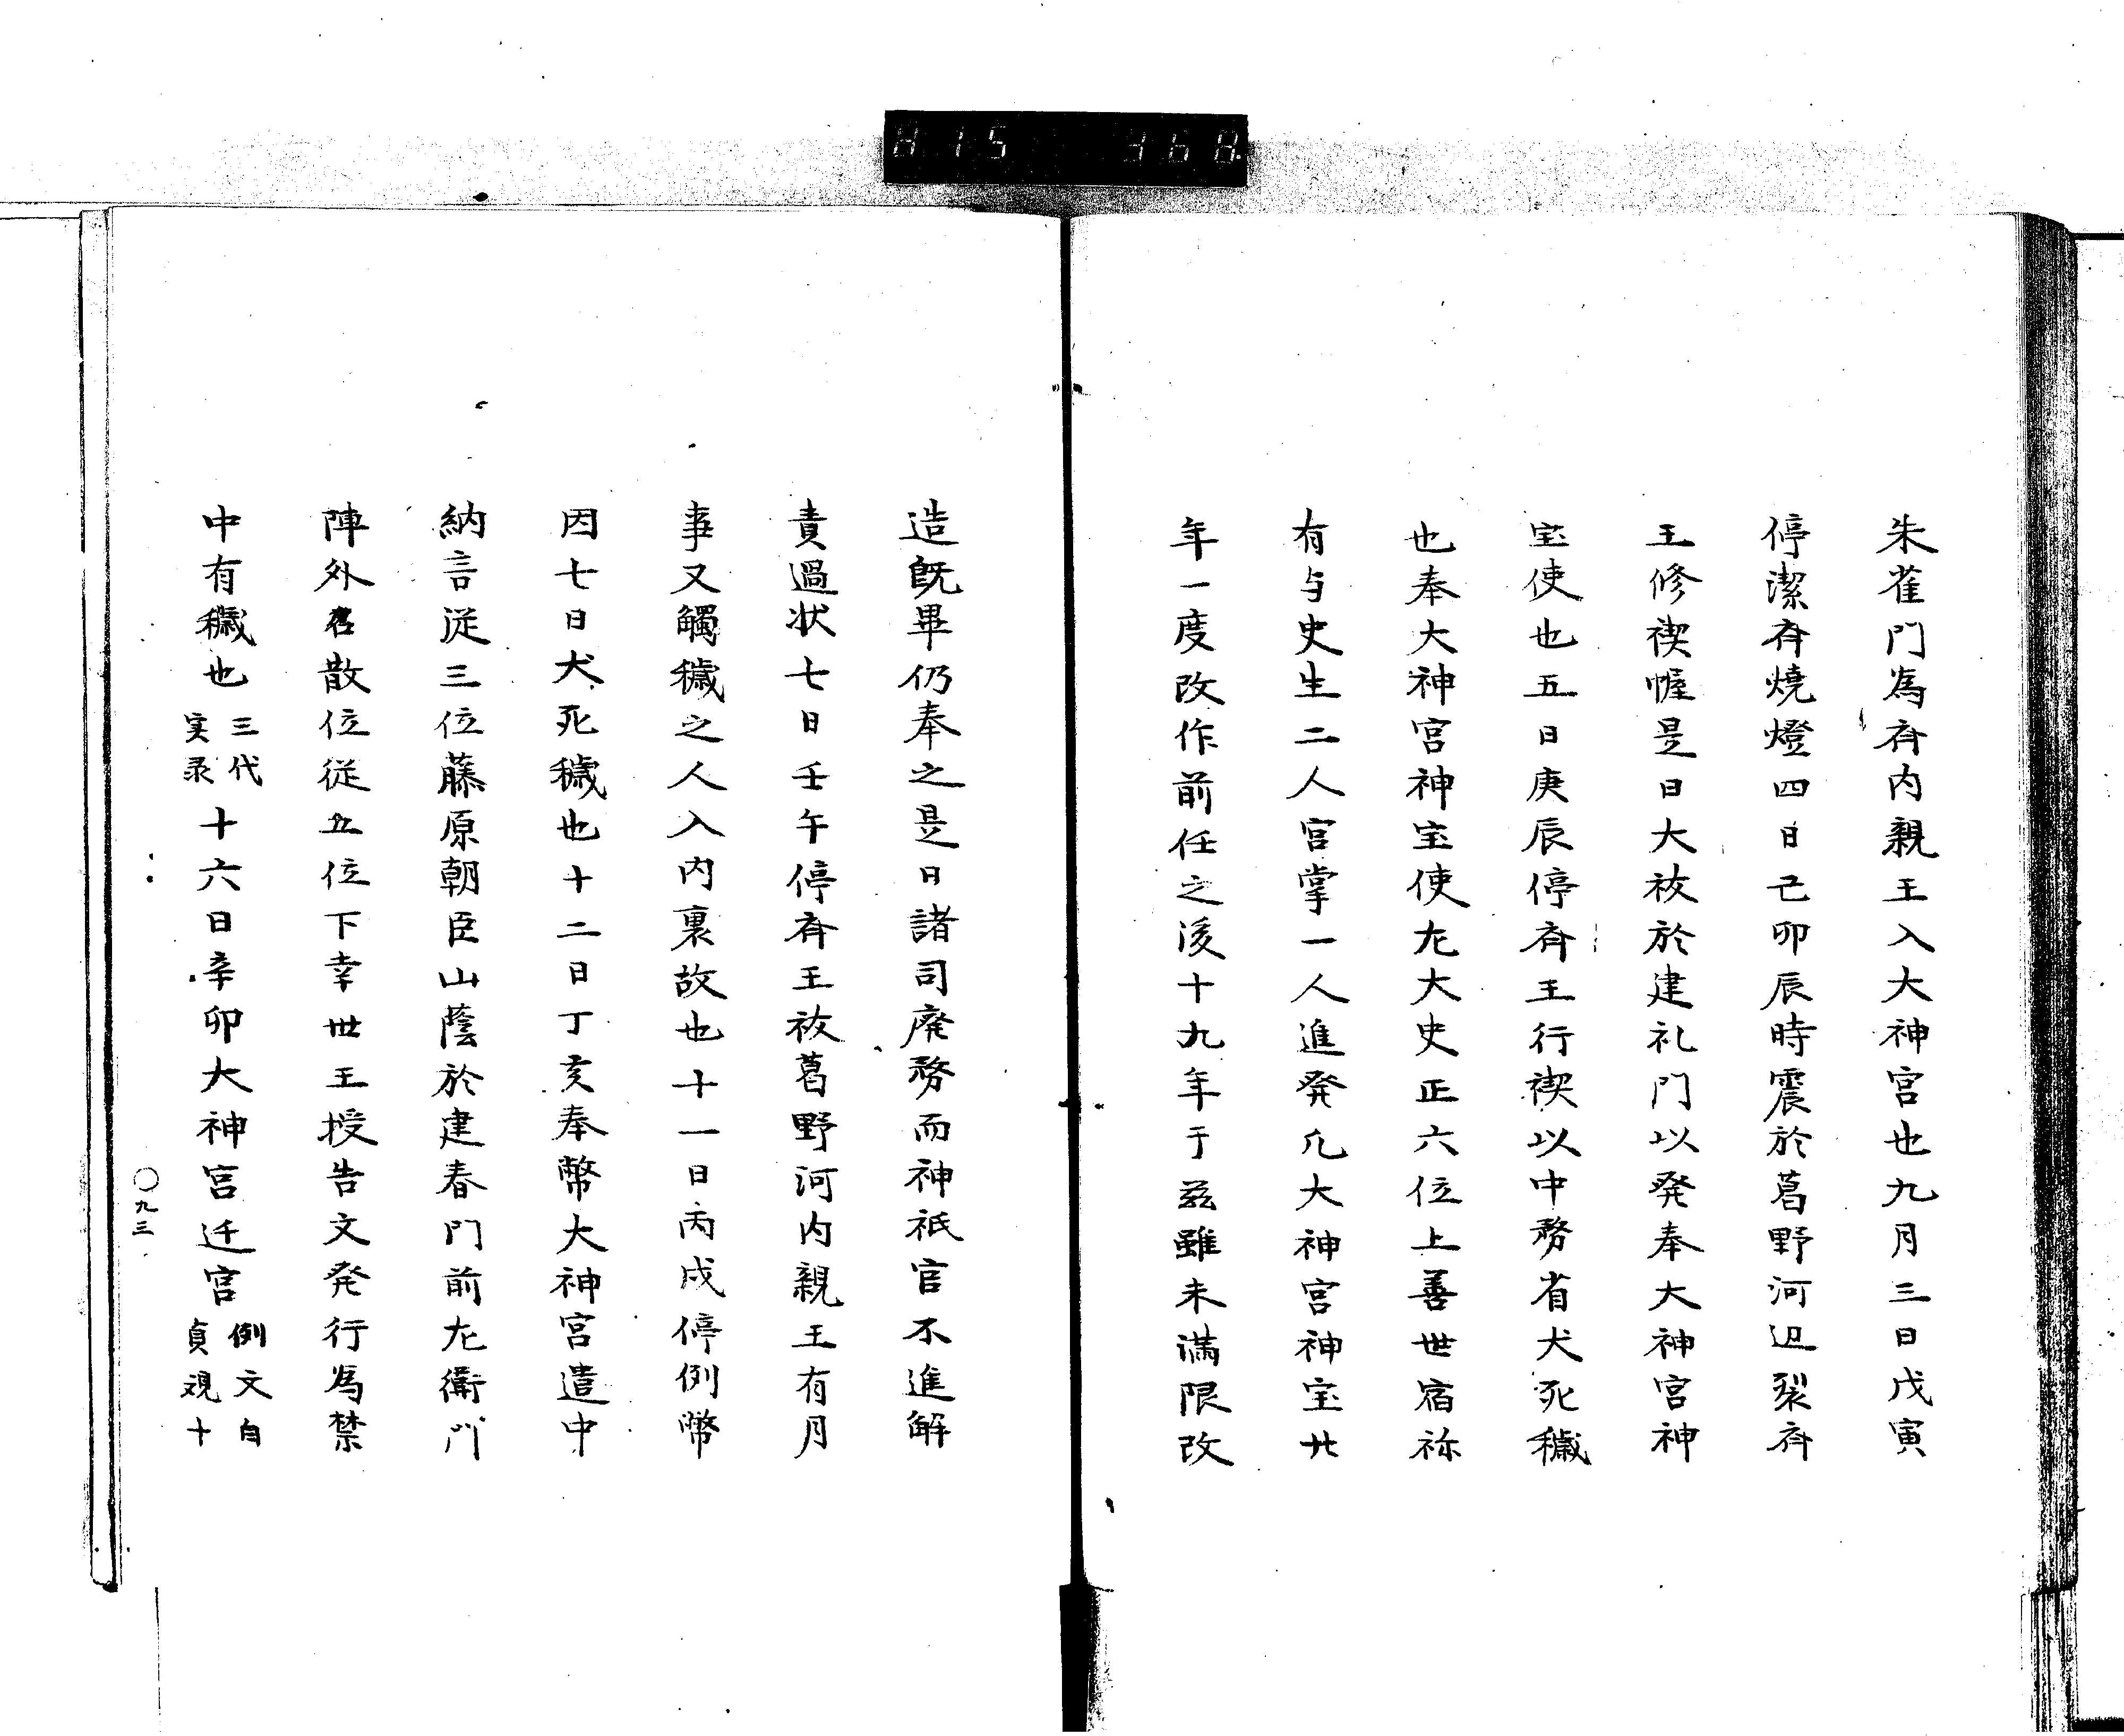 朱雀門為斉内親王入大神宮也九月三日戊寅
停潔斉焼燈四日己卯辰時震於葛野河辺裂斉
王修禊幄是日大祓於建礼門以発奉大神宮神
宝使也五日庚辰停斉王行禊以中務省犬死穢
也奉大神宮神宝使左大史正六位上善世宿祢
有与史生二人宮掌一人進発凡大神宮神宝廿
年一度改作前任之後十九年于茲雖未満限改
造既畢仍奉之是日諸司廃務而神祇官不進解
責過状七日壬午停斉王祓葛野河内親王有月
事又觸穢之人入内裏故也十一日丙戌停例幣
因七日犬死穢也十二日丁亥奉幣大神宮遣中
納言従三位藤原朝臣山蔭於建春門前左衛門
陣外召散位従五位下幸世王授告文発行為禁
中有穢也三代実录十六日辛卯大神宮迁宮例文自貞観十
〇九三
H15 368